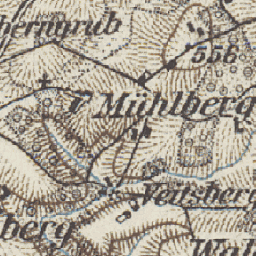 berngrub
556
Mühlberg
Veitsberg
berg
Wal